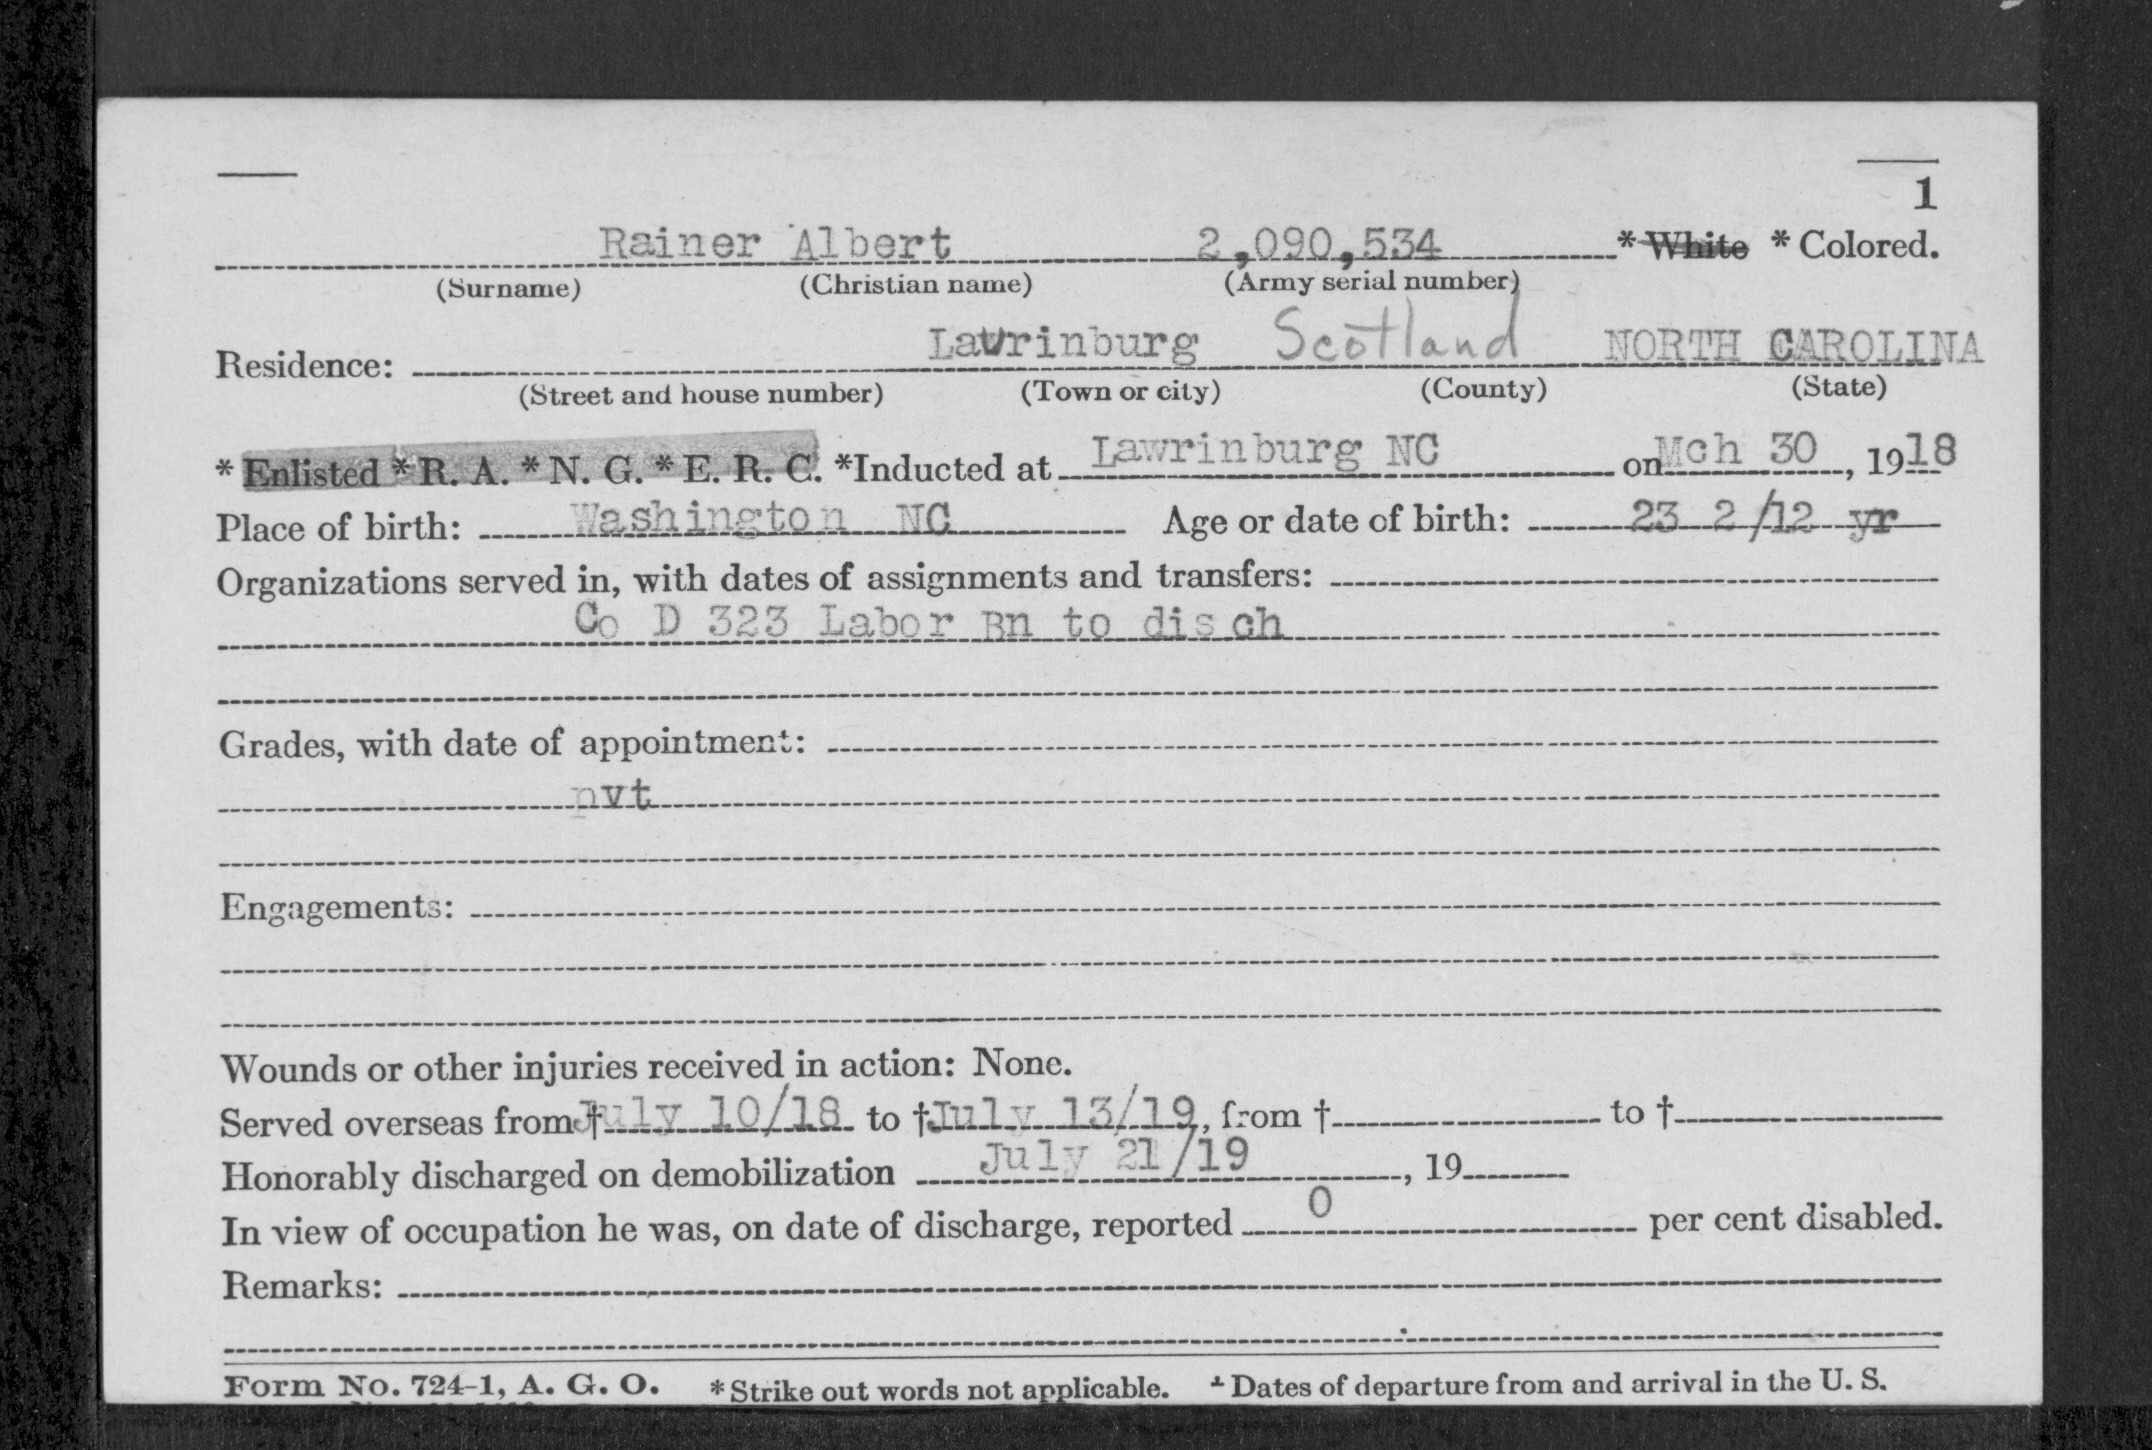 1
Rainer Albert 2,090,534 * White * Colored.
(Surname) (Christian name) (Army serial number)
Residence: Laurinburg Scotland NORTH CAROLINA
(Street and house number) (Town or city) (County) (State)
* Enlisted * R. A. * N. G. * E. R. C. *Inducted at Lawrinburg NC on Mch 30, 1918
Place of birth: Washington NC Age or date of birth: 23 2/12 yr
Organizations served in, with dates of assignments and transfers:
Co D 323 Labor Bn to disch
Grades, with date of appointment:
pvt
Engagements:
Wounds or other injuries received in action: None.
Served overseas from † July 10/18 to † July 13/19, from † to †
Honorably discharged on demobilization July 21/19, 19
In view of occupation he was, on date of discharge, reported 0 per cent disabled.
Remarks:
Form No. 724-1, A. G. O. * Strike out words not applicable. † Dates of departure from and arrival in the U. S.